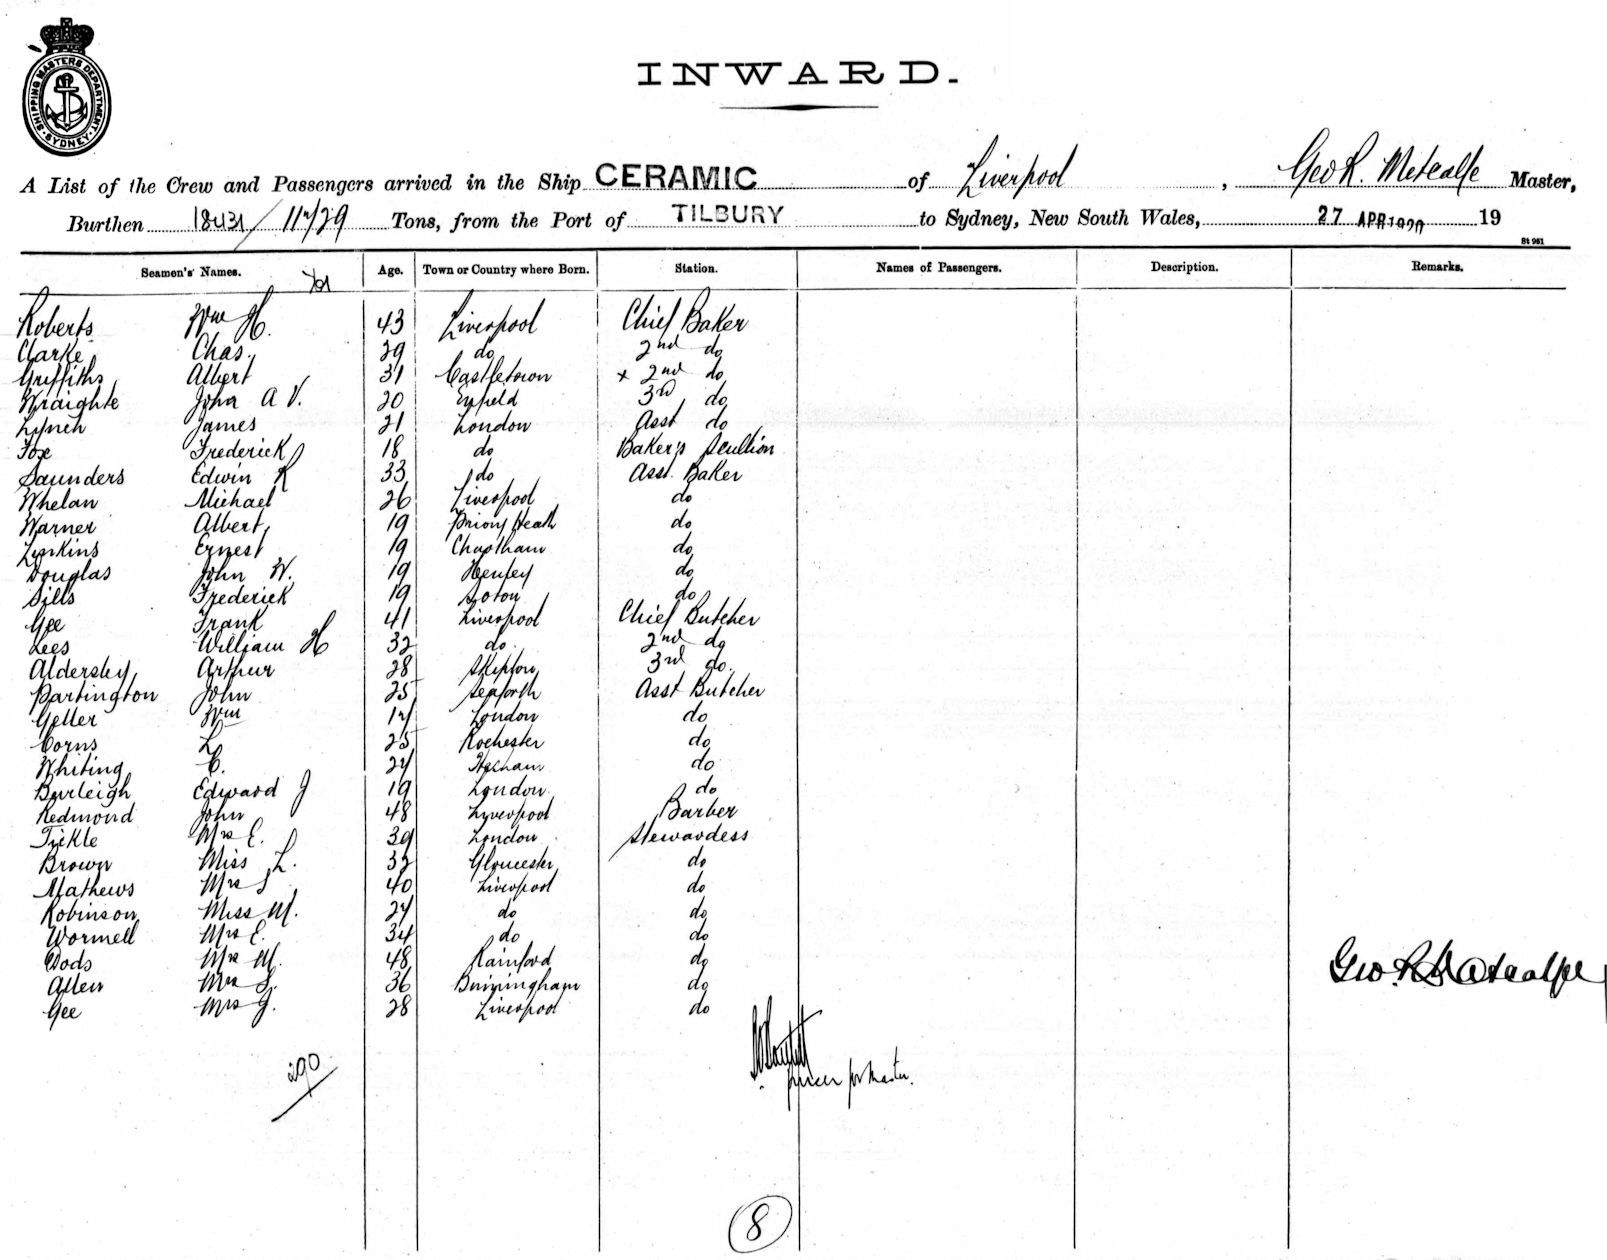 SHIPPING MASTERS DEPARTMENT · SYDNEY ·
INWARD.
A List of the Crew and Passengers arrived in the Ship CERAMIC of Liverpool, Geo R. Metcalfe Master,
Burthen Tons, from the Port of TILBURY to Sydney, New South Wales, 27 APR 19
St 961
Seamen's Names. Age. Town or Country where Born. Station. Names of Passengers. Description. Remarks.
Roberts Wm H. 43 Liverpool Chief Baker
Clarke Chas. 29 do 2nd do
Griffiths Albert 31 Castletown x 2nd do
Wraighte John A V. 20 Enfield 3rd do
Lynch James 21 London Asst do
Fox Frederick 18 do Baker's Scullion
Saunders Edwin R 33 do Asst. Baker
Whelan Michael 26 Liverpool do
Warner Albert 19 Priory Heath do
Ernest 19 do
Douglas John W. 19 Henley do
Sills Frederick 19 Soton do
Gee Frank 41 Liverpool Chief Butcher
Lees William H 32 do 2nd do
Aldersley Arthur 28 Skipton 3rd do.
Partington John 25 Seaforth Asst Butcher
Geller Wm 17 London do
Corns L 25 Rochester do
Whiting C. 24 do
Burleigh Edward J 19 London do
Redmond John 48 Liverpool Barber
Tickle Mrs E. 39 London Stewardess
Brown Miss L. 32 Gloucester do
Mathews Mrs 40 Liverpool do
Robinson Miss M. 24 do do
Wormell Mrs E. 34 do do
Dods Mrs M. 48 Rainford do
Allen Mrs 36 Birmingham do
Gee Mrs J. 28 Liverpool do
Geo. R Metcalfe
290
for Master.
8